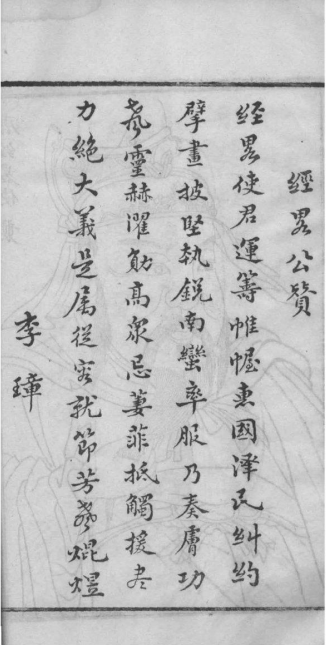 經畧公贊
經畧使君運籌帷幄惠國澤民糾約
擘畫披堅執銳南蠻率服乃奏膚功
聲靈赫濯勛高衆忌萋菲抵觸援盡
力絕大義是屬從容就節芳聲焜煜
李璋